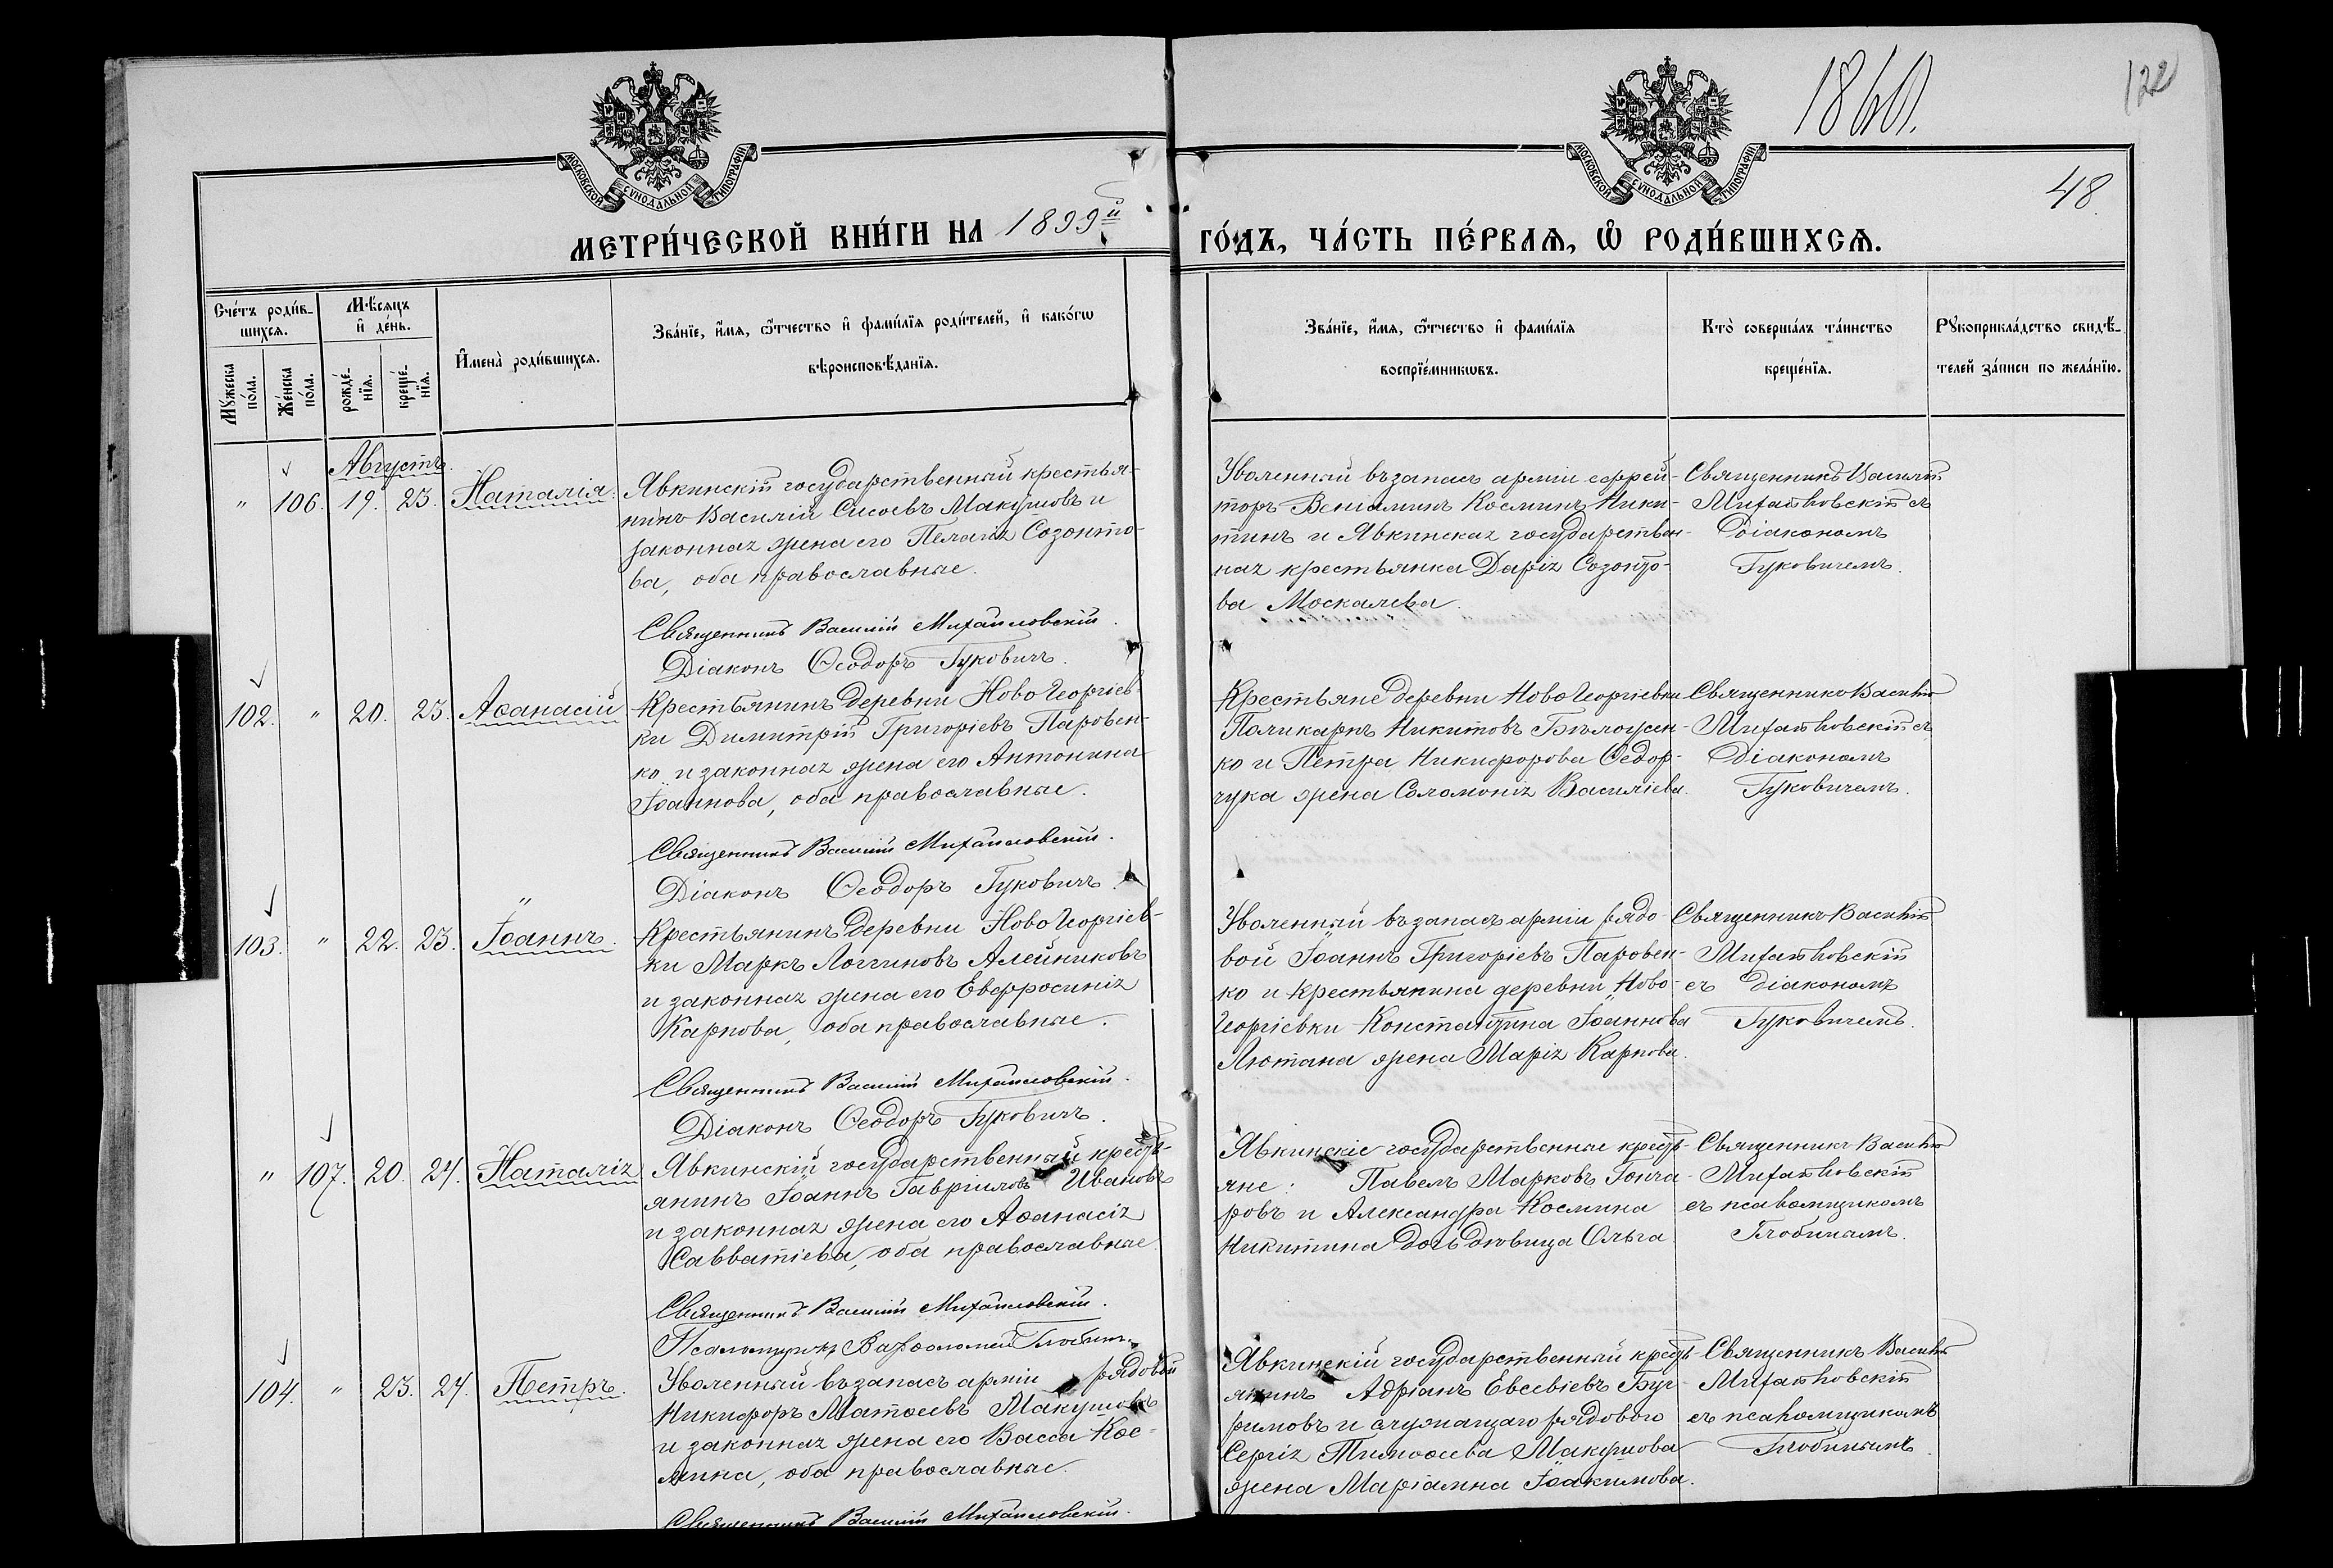 1860.
122
48.
МОСКОВСКОЙ СѴНОДАЛЬНОЙ ТИПОГРАФІИ
МОСКОВСКОЙ СѴНОДАЛЬНОЙ ТИПОГРАФІИ
МЕТРИ́ЧЕСКОЙ КНИ́ГИ НА 1899й
ГО́ДЪ, ЧА́СТЬ ПЕ́РВАѦ, Ѡ҆ РОДИ́ВШИХСѦ.
Сче́тъ роди́в-
шихсѧ.
Мꙋ́жеска по́ла.
Же́нска по́ла.
Мѣ́сѧцъ
и҆ де́нь.
рожде́-нїѧ.
креще́-нїѧ.
И҆мена̀ роди́вшихсѧ.
Зва́нїе, и҆́мѧ, ѻ҆́тчество и҆ фами́лїѧ роди́телей, и҆ како́гѡ
вѣроисповѣ́данїѧ.
Зва́нїе, и҆́мѧ, ѻ҆́тчество и҆ фами́лїѧ
воспрїе́мникѡвъ.
Кто̀ соверша́лъ та́инство
креще́нїѧ.
Рꙋкоприкла́дство свидѣ́-
телей за́писи по жела́нїю.
Августъ.
" 106. 19. 23. Наталія.
Явкинскій государственный крестья-
нинъ Василій Сисоевъ Макушовъ и
законная жена его Пелагія Созонто-
ва, оба православные.
Священникъ Василій Михайловскій.
Діаконъ Ѳеодоръ Гуковичъ.
Уволенный въ запасъ арміи ефрей-
торъ Веніаминъ Косминъ Ники-
тинъ и Явкинская государствен-
ная крестьянка Дарія Созонто-
ва Москалева.
Священникъ Василій
Михайловскій съ
діакономъ
Гуковичемъ.
102. " 20. 23. Аѳанасій
Крестьянинъ деревни Ново Георгіев-
ки Димитрій Григоріевъ Паровен-
ко и законная жена его Антонина
Іоаннова, оба православные.
Священникъ Василій Михайловскій.
Діаконъ Ѳеодоръ Гуковичъ.
Крестьяне деревни Ново Георгіевки
Поликарпъ Никитовъ Бѣлоусен-
ко и Петра Никифорова Ѳедор-
чука жена Соломонія Василіева.
Священникъ Василій
Михайловскій съ
Діакономъ
Гуковичемъ.
103. " 22. 23. Іоаннъ.
Крестьянинъ деревни Ново Георгіев-
ки Маркъ Логгиновъ Алейниковъ
и законная жена его Евфросинія
Карпова, оба православные.
Священникъ Василій Михайловскій.
Діаконъ Ѳеодоръ Гуковичъ.
Уволенный въ запасъ арміи рядо-
вой Іоаннъ Григоріевъ Паровен-
ко и крестьянина деревни Ново-
Георгіевки Константина Іоаннова
Лютана жена Марія Карпова.
Священникъ Василій
Михайловскій
съ діакономъ
Гуковичемъ.
" 107. 20. 24. Наталія
Явкинскій государственный кресть-
янинъ Іоаннъ Гавриловъ Ивановъ
и законная жена его Аѳанасія
Савватіева, оба православные
Священникъ Василій Михайловскій.
Псаломщикъ Варѳоломей Глобинъ.
Явкинскіе государственные кресть-
яне: Павелъ Марковъ Гонча-
ровъ и Александра Космина
Никитина дочь дѣвица Ольга.
Священникъ Василій
Михайловскій
съ псаломщикомъ
Глобинымъ.
104. " 23. 24. Петръ.
Уволенный въ запасъ арміи рядовой
Никифоръ Матѳеевъ Макушовъ
и законная жена его Васса Кос-
мина, оба православные.
Священникъ Василій Михайловскій.
Явкинскій государственный кресть-
янинъ Адріанъ Евсевіевъ
римовъ и служащаго рядового
Сергія Тимоѳеева Макушова
жена Маріамна Іоакимова.
Священникъ Василій
Михайловскій
съ псаломщикомъ
Глобинымъ.